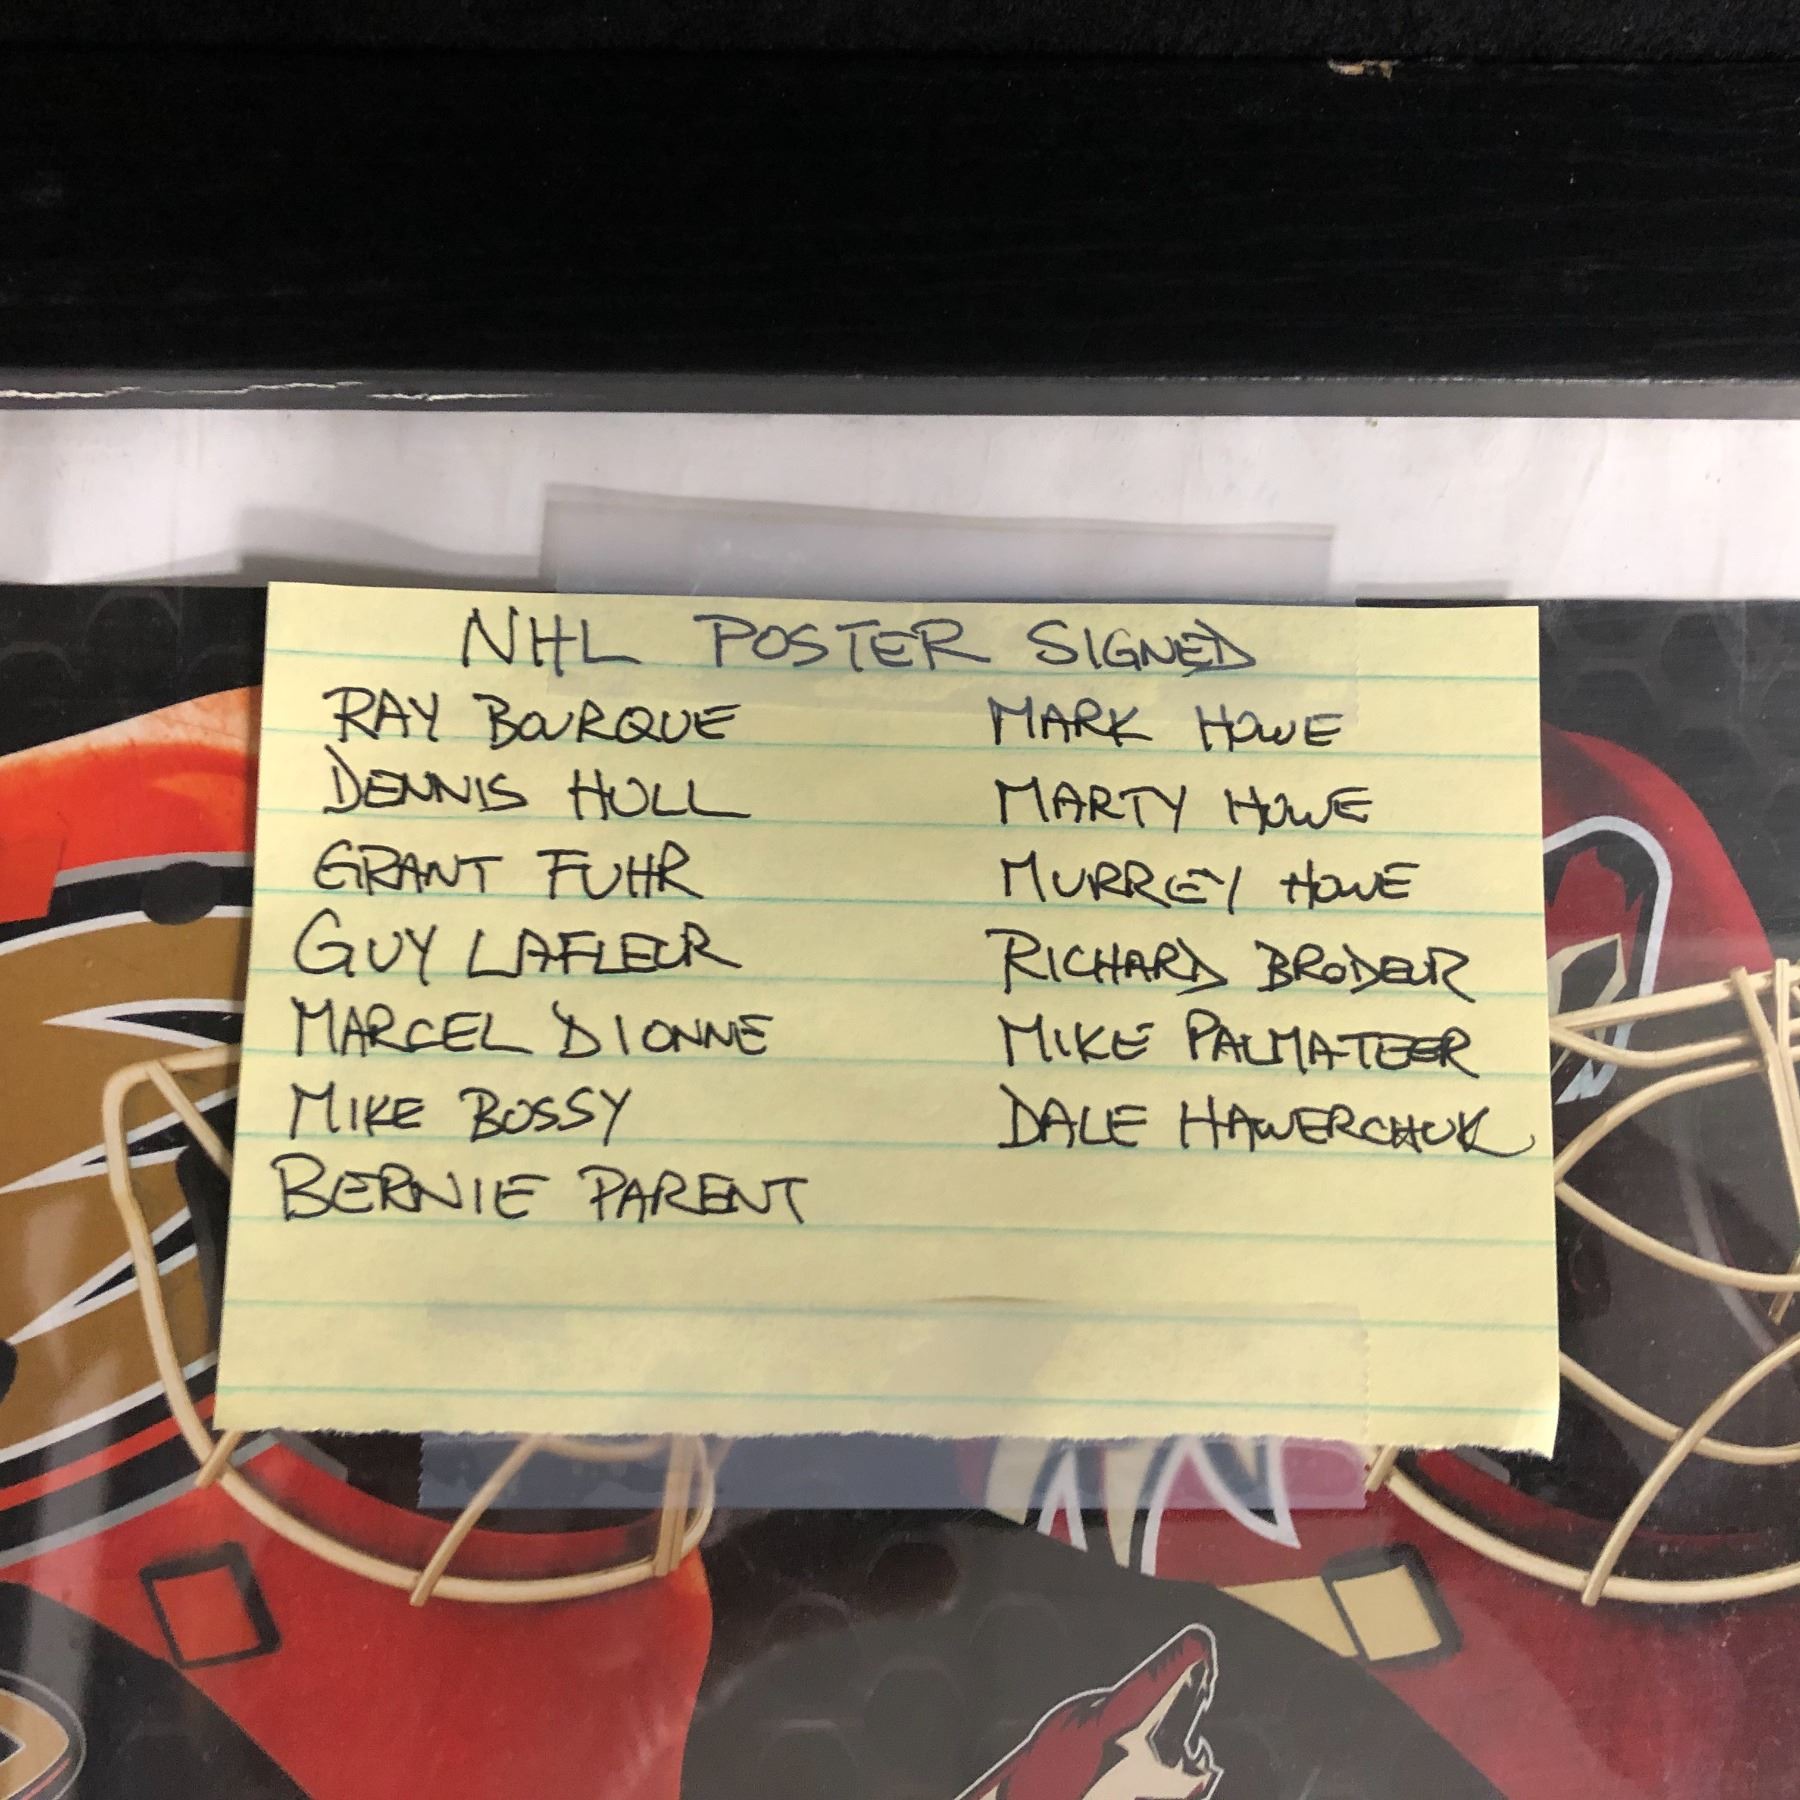 NHL POSTER SIGNED
RAY BOURQUE
DENNIS HULL
GRANT FUHR
GUY LAFLEUR
MARCEL DIONNE
MIKE BOSSY
BERNIE PARENT
MARK HOWE
MARTY HOWE
MURREY HOWE
RICHARD BRODEUR
MIKE PALMATEER
DALE HAWERCHUK